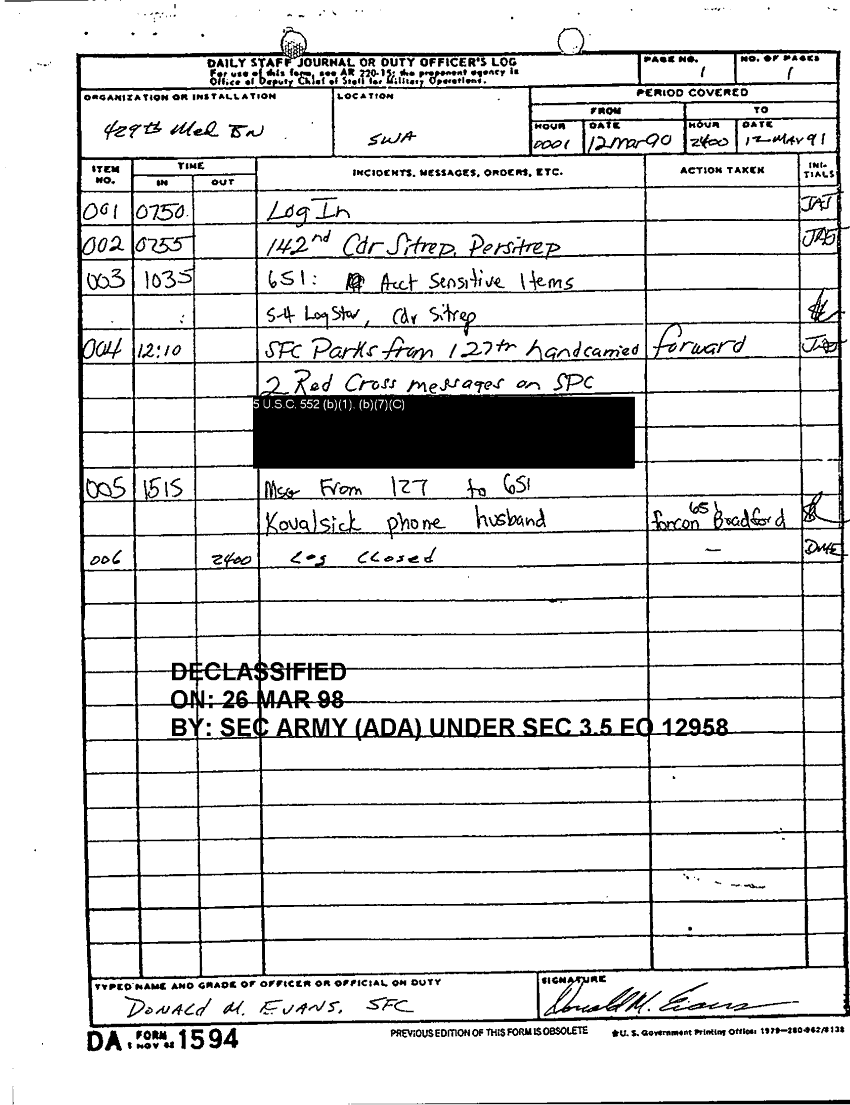 DAILY STAFF JOURNAL OR DUTY OFFICER'S LOG
For use of this form, see AR 220-15; the proponent agency is
Office of Deputy Chief of Staff for Military Operations.
PAGE NO.
1
NO. OF PAGES
1
ORGANIZATION OR INSTALLATION
429th Med BN
LOCATION
SWA
PERIOD COVERED
FROM
TO
HOUR
0001
DATE
12Mar90
HOUR
2400
DATE
12 MAR 91
ITEM NO.
TIME
IN
OUT
INCIDENTS, MESSAGES, ORDERS, ETC.
ACTION TAKEN
INI-
TIALS
001 0750 Log In
002 0755 142nd Cdr Sitrep, Persitrep
003 1035 651: Acct Sensitive Items
S-4 LogStat, Cdr Sitrep
004 12:10 SFC Parks from 127th handcarried forward
2 Red Cross messages on SPC
5 U.S.C. 552 (b)(1). (b)(7)(C)
005 1515 Msg From 127 to 651
Kovalsick phone husband 651 Bradford
006 2400 Log Closed — DME
DECLASSIFIED
ON: 26 MAR 98
BY: SEC ARMY (ADA) UNDER SEC 3.5 EO 12958
TYPED NAME AND GRADE OF OFFICER OR OFFICIAL ON DUTY
DONALD M. EVANS, SFC
SIGNATURE
Donald M. Evans
DA FORM 1594
1 NOV 62
PREVIOUS EDITION OF THIS FORM IS OBSOLETE
U. S. Government Printing Office: 1979—280-962/8138